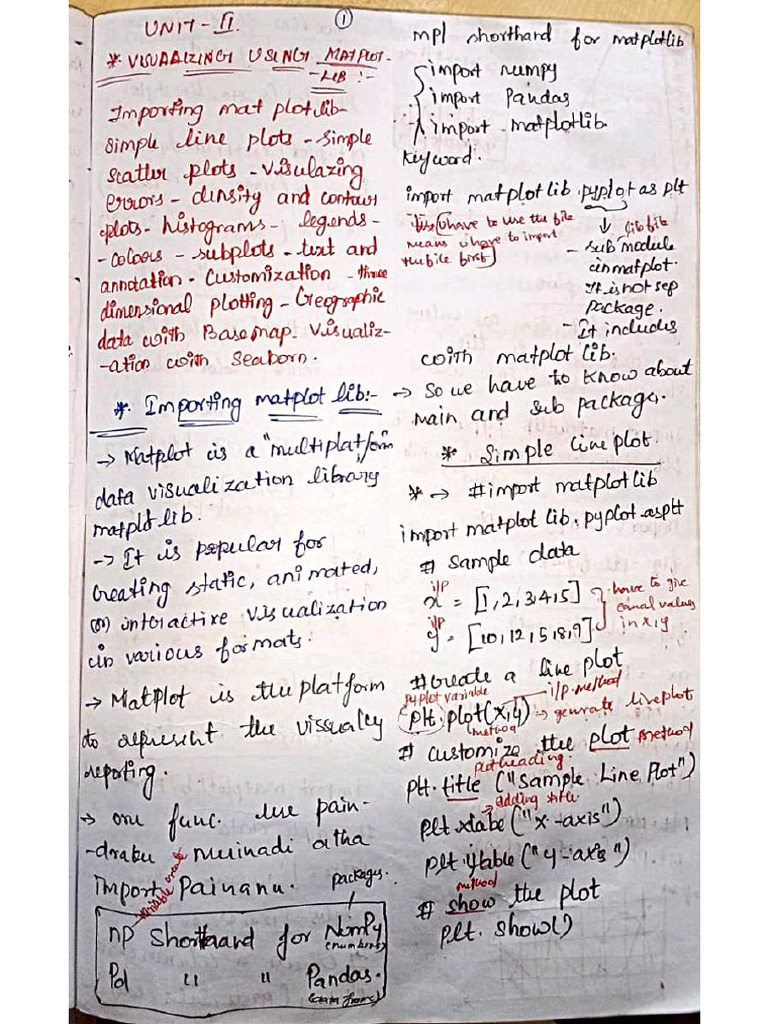 UNIT-II.
①
* VISUALIZING USING MATPLOT-
-LIB :-
Importing mat plotlib-
simple line plots - simple
scatter plots - visulazing
errors - density and contour
plots - histograms - legends -
- colours - subplots - text and
annotation - Customization - three
dimensional plotting - Geographic
data with Basemap. Visualiz-
-ation with Seaborn.
* Importing matplot lib:-
→ Matplot is a "multiplatform
data visualization library"
matplotlib.
→ It is popular for
creating static, animated,
(or) interactive visualization
in various formats.
→ Matplot is the platform
to represent the vissualey
reporting.
→ one func. use pain-
-draku munnadi atha
import Painanu.
variable create
packages.
np Shorthand for NumPy
(numbers)
Pd " " Pandas.
(data frame)
mpl shorthand for matplotlib
import numpy
import Pandas
import matplotlib.
keyword.
import matplotlib.pyplot as plt
u have to use the file
means u have to import
the file first
lib file
- sub module
in matplot.
It is not sep
package.
- It includes
with matplot lib.
→ So we have to know about
main and sub package.
* Simple line plot.
* → #import matplotlib
import matplot lib.pyplot.asplt
# Sample data
i/p
x = [1,2,3,4,5]
i/p
y = [10,12,5,8,9]
have to give
equal values
in x,y
#create a line plot
pyplot variable
i/p method
plt.plot(x,y) → genurate lineplot
method
# Customize the plot method
plotheading
plt.title ("Sample Line Plot")
→ adding title
plt.xlabe("x-axis")
plt.ylable("y-axis")
method
# show the plot
plt.show()